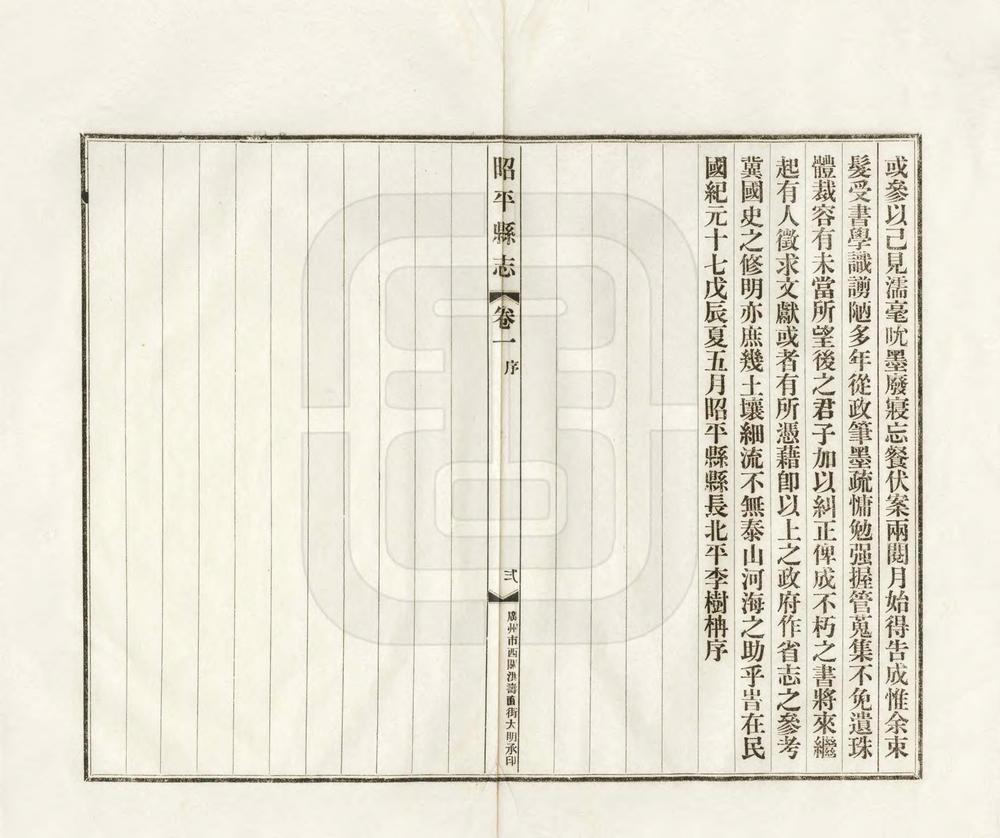 或參以己見濡毫吮墨廢寢忘餐伏案兩閱月始得告成惟余束
髮受書學識謭陋多年從政筆墨疏慵勉强握管蒐集不免遺珠
體裁容有未當所望後之君子加以糾正俾成不朽之書將來繼
起有人徵求文獻或者有所憑藉卽以上之政府作省志之參考
冀國史之修明亦庶幾土壤細流不無泰山河海之助乎旹在民
國紀元十七戊辰夏五月昭平縣縣長北平李樹枏序
昭平縣志
卷一
序
弍
廣州市西關洪壽街大明承印